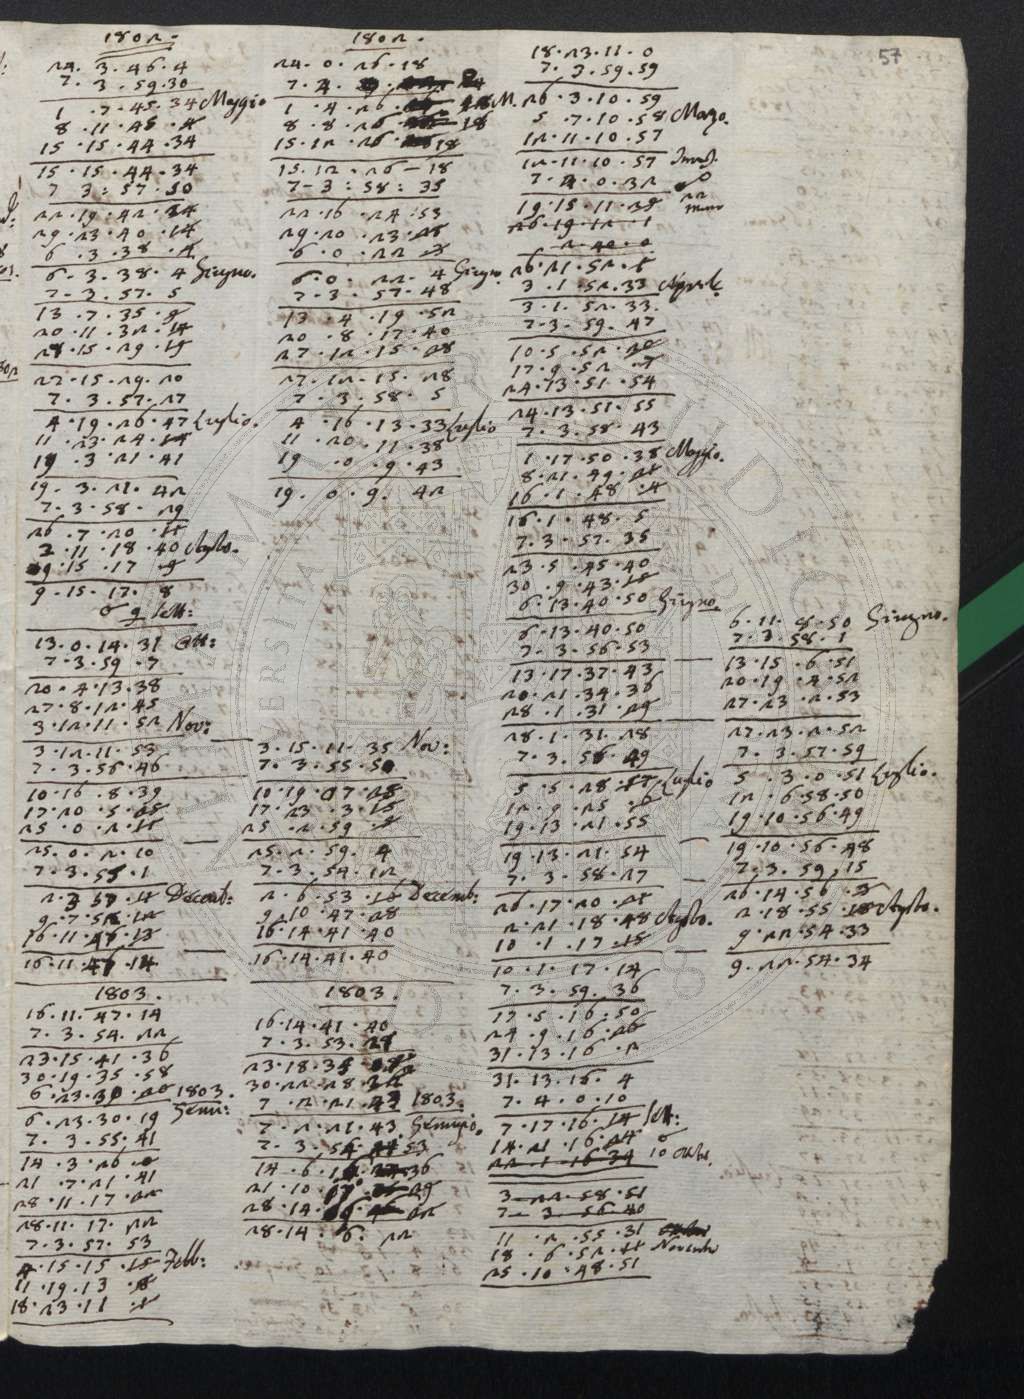 57
1802.
24. 3. 46. 4
7. 3. 59. 30
1. 7. 45. 34 Maggio
8. 11. 45. 4
15. 15. 44. 34
15. 15. 44. 34
7 3: 57. 50
22. 19. 42. 24
29. 23. 40. 14
6. 3. 38. 4
6. 3. 38. 4 Giugno.
7. 3. 57. 5
13. 7. 35. 9
20. 11. 32. 14
28. 15. 29. 19
27. 15. 29. 20
7. 3. 57. 27
4. 19. 26. 47 Luglio.
11. 23. 24. 14
19. 3. 21. 41
19. 3. 21. 42
7. 3. 58. 29
26. 7. 20. 11
3. 11. 18. 40 Agsto.
9. 15. 17. 9
9. 15. 17. 8
9 Sett:
13. 0. 14. 31 Ott:
7. 3. 59. 7
20. 4. 13. 38
27. 8. 12. 45
3. 12. 11. 52 Nov:
3. 12. 11. 53
7. 3. 56. 46
10. 16. 8. 39
17. 20. 5. 25
25. 0. 2. 11
25. 0. 2. 10
7. 3. 55. 1
2. 3 57. 14 Decemb:
9. 7. 52. 12
16. 11. 47. 13
16. 11. 47. 14
1803.
16. 11. 47. 14
7. 3. 54. 22
23. 15. 41. 36
30. 19. 35. 58
6. 23. 30. 20 1803.
6. 23. 30. 19 Genn:
7. 3. 55. 41
14. 3. 26. 0
21. 7. 21. 41
28. 11. 17. 22
28. 11. 17. 22
7. 3. 57. 53
4. 15. 15. 15 Febb:
11. 19. 13. 8
18. 23. 11. 1
1802.
24. 0. 26. 18
7. 4.
1. 4. 26. M.
8. 8. 26. 18
15. 12. 26. 18
15. 12. 26-18
7-3: 58: 35
22. 16. 24. 53
29. 20. 23. 28
6. 0. 22. 3
6. 0. 22. 4 Giugn
7-3. 57. 48
13. 4. 19. 52
20. 8. 17. 40
27. 12. 15. 28
27. 12. 15. 28
7. 3. 58. 5
4. 16. 13. 33 Luglio
11. 20. 11. 38
19. 0. 9. 43
19. 0. 9. 42
3. 15. 11. 35 Nov:
7. 3. 55. 50
10. 19. 07. 28
17. 23. 3. 15
25. 2. 59. 5
25. 2. 59. 4
7. 3. 54. 12
2. 6. 53. 16 Decemb:
9. 10. 47. 28
16. 14. 41. 40
16. 14. 41. 40
1803.
16. 14. 41. 40
7. 3. 53. 28
23. 18. 35
30. 22. 28. 36
7. 2. 21. 43 1803.
7. 2. 21. 43 Gennaio.
7. 3. 54. 53
14. 6. 36
21. 10. 29
28. 14. 22
28. 14. 6. 22
18. 23. 11. 0
7. 3. 59. 59
26. 3. 10. 59
5. 7. 10. 58 Marzo.
12. 11. 10. 57
12. 11. 10. 57
7. 4. 0. 32
19. 15. 11. 38
26. 19. 12. 1
2. 40. 0
26. 21. 52. 5
3. 1. 52. 33 Aprile
3. 1. 52. 33.
7. 3. 59. 47
10. 5. 52. 20
17. 9. 52. 7
24. 13. 51. 54
24. 13. 51. 55
7. 3. 58. 43
1. 17. 50. 38 Maggio.
8. 21. 49. 21
16. 1. 48. 4
16. 1. 48. 5
7. 3. 57. 35
23. 5. 45. 40
30. 9. 43. 15
6. 13. 40. 50 Giugno.
6. 13. 40. 50
7. 3. 56. 53
13. 17. 37. 43
20. 21. 34. 36
28. 1. 31. 29
28. 1. 31. 28
7. 3. 56. 49
5. 5. 28. 17 Luglio
12. 9. 25. 6
19. 13. 21. 55
19. 13. 21. 54
7. 3. 58. 27
26. 17. 20. 21
2. 21. 18. 48 Agsto.
10. 1. 17. 15
10. 1. 17. 14
7. 3. 59. 36
17. 5. 16. 50
24. 9. 16. 26
31. 13. 16. 2
31. 13. 16. 4
7. 4. 0. 10
7. 17. 16. 14 Sett:
14. 21. 16. 24
22. 1. 16. 34
3. 22. 58. 51
7. 3. 56. 40
11. 2. 55. 31
18. 6. 52. 11 Novembre
25. 10. 48. 51
6. 11. 8. 50 Giugno.
7. 3. 58. 1
13. 15. 6. 51
20. 19. 4. 52
27. 23. 2. 53
27. 23. 2. 52
7. 3. 57. 59
5. 3. 0. 51 Luglio.
12. 6. 58. 50
19. 10. 56. 49
19. 10. 56. 48
7. 3. 59, 15
26. 14. 56. 3
2. 18. 55. 18 Agsto.
9. 22. 54. 33
9. 22. 54. 34